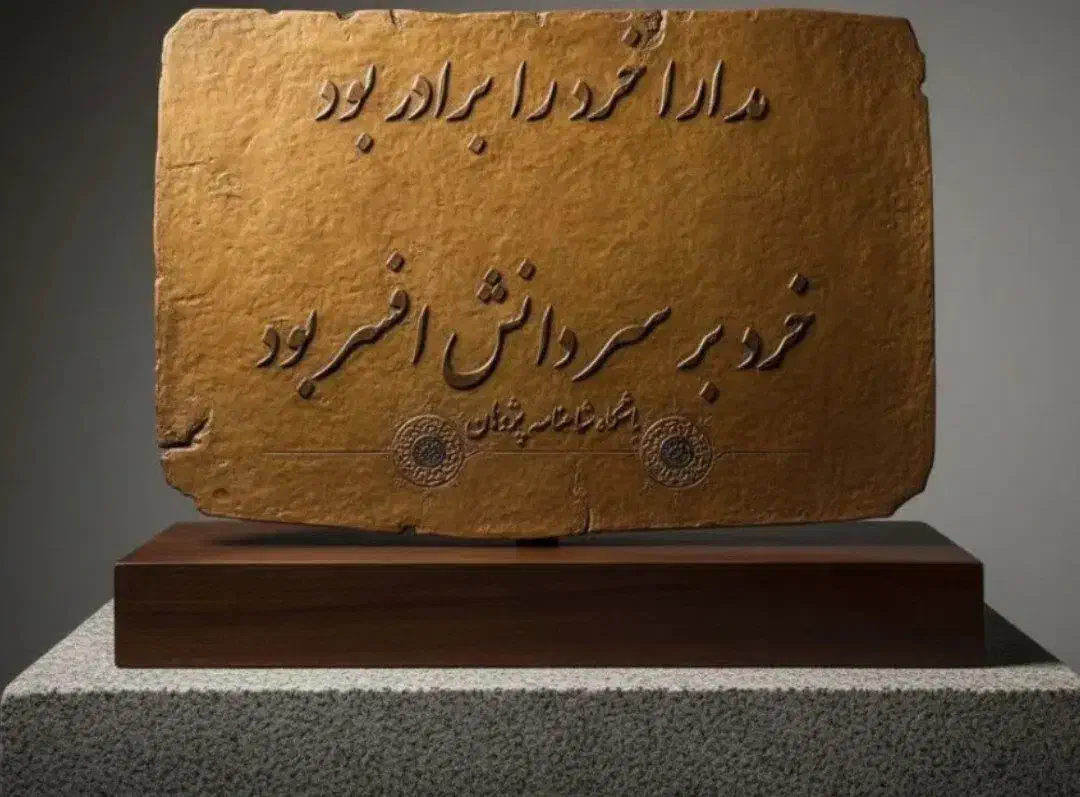 مدارا خرد را برادر بود
خرد بر سر دانش افسر بود
باشگاه شاهنامه پژوهان